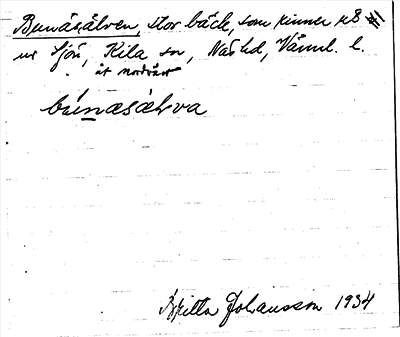 Bunäsälven, stor bäck, som rinner
ur sjön, Kila sn, Näs hd, Värml. l.
åt nordväst
búnæsælva
Britta Johansson 1934